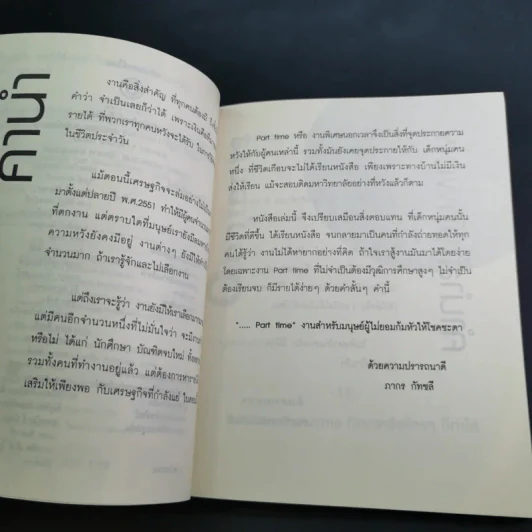 คำนำ
งานคือสิ่งสำคัญ ที่ทุกคนต้องมี
คำว่า จำเป็นเลยก็ว่าได้ เพราะเงินคือ
รายได้ ที่พวกเราทุกคนหวังจะได้รับ
ในชีวิตประจำวัน
แม้ตอนนี้เศรษฐกิจจะล่มอย่างไม่เป็น
มาตั้งแต่ปลายปี พ.ศ.2551 ทำให้มีผู้คน
ที่ตกงาน แต่ตราบใดที่มนุษย์เรายังมี
ความหวังยังคงมีอยู่ งานต่างๆ ยังมีให้
จำนวนมาก ถ้าเรารู้จักและไม่เลือกงาน
แต่ถึงเราจะรู้ว่า งานยังมีให้เราเลือก
แต่มีคนอีกจำนวนหนึ่งที่ไม่มั่นใจว่า จะมีงาน
หรือไม่ ได้แก่ นักศึกษา บัณฑิตจบใหม่
รวมทั้งคนที่ทำงานอยู่แล้ว แต่ต้องการหา
เสริมให้เพียงพอ กับเศรษฐกิจที่กำลังแย่
Part time หรือ งานพิเศษนอกเวลาจึงเป็นสิ่งที่จุดประกายความ
หวังให้กับผู้คนเหล่านี้ รวมทั้งมันยังเคยจุดประกายให้กับ เด็กหนุ่มคน
หนึ่ง ที่ชีวิตเกือบจะไม่ได้เรียนหนังสือ เพียงเพราะทางบ้านไม่มีเงิน
ส่งให้เรียน แม้จะสอบติดมหาวิทยาลัยอย่างที่หวังแล้วก็ตาม
หนังสือเล่มนี้ จึงเปรียบเสมือนสิ่งตอบแทน ที่เด็กหนุ่มคนนั้น
มีชีวิตที่ดีขึ้น ได้เรียนหนังสือ จนกลายมาเป็นคนที่กำลังถ่ายทอดให้ทุก
คนได้รู้ว่า งานไม่ได้หายากอย่างที่คิด ถ้าใจเราสู้งานมันมาได้โดยง่าย
โดยเฉพาะงาน Part time ที่ไม่จำเป็นต้องมีวุฒิการศึกษาสูงๆ ไม่จำเป็น
ต้องเรียนจบ ก็มีรายได้ง่ายๆ ด้วยคำสั้นๆ คำนี้
"..... Part time" งานสำหรับมนุษย์ผู้ไม่ยอมก้มหัวให้โชคชะตา
ด้วยความปรารถนาดี
ภากร กัทชลี